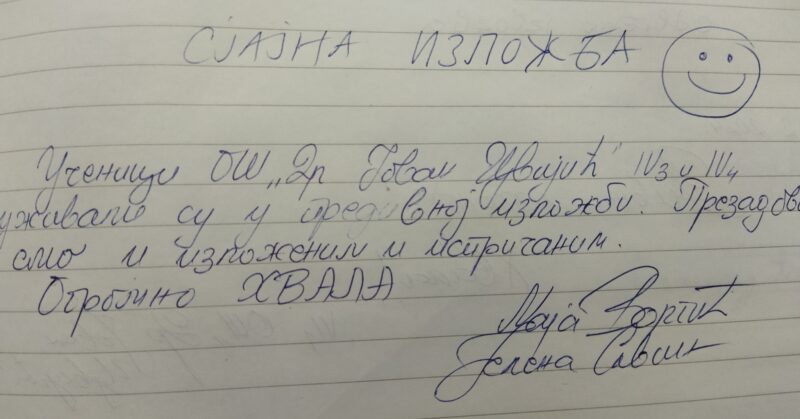 СЈАЈНА ИЗЛОЖБА
Ученици ОШ „Др Јован Цвијић" IV3 и IV4
уживали су у предивној изложби. Презадово
смо и изложеним и испричаним.
Огромно ХВАЛА
Маја
Јелена